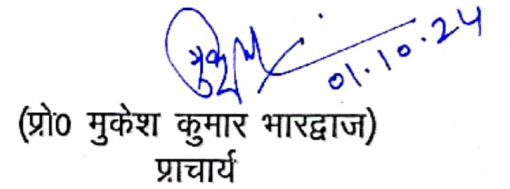 01.10.24
(प्रो0 मुकेश कुमार भारद्वाज)
प्राचार्य